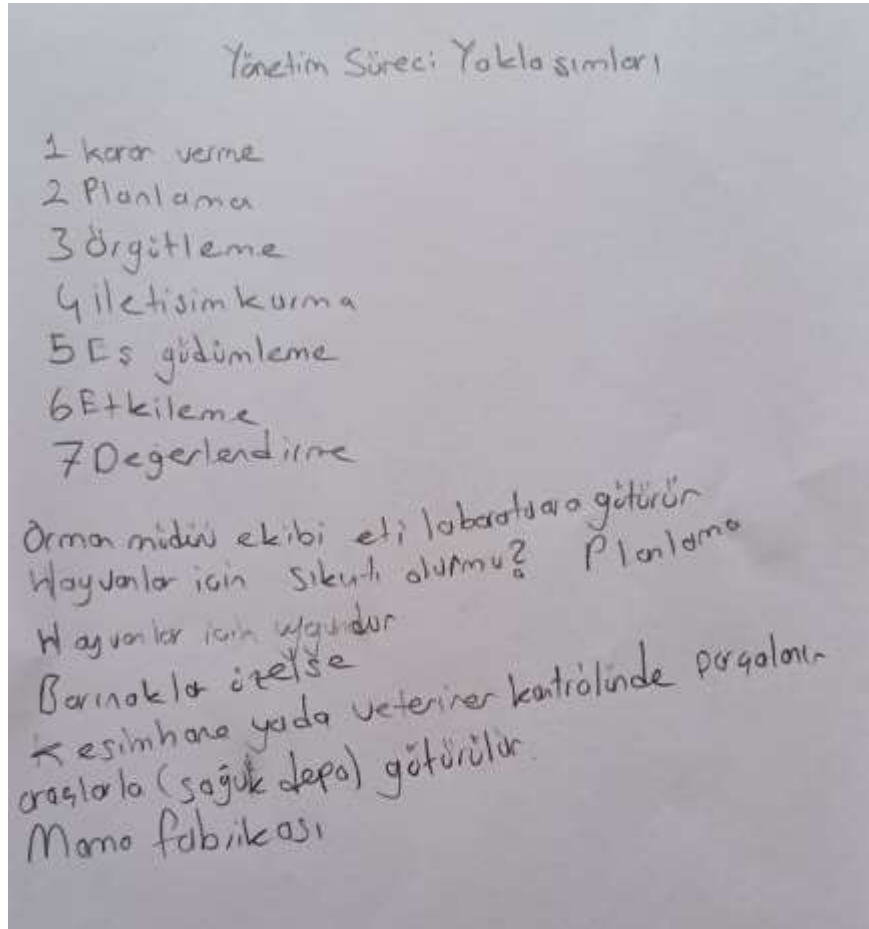 Yönetim Süreci Yaklaşımları
1 karar verme
2 Planlama
3 Örgütleme
4 iletisim kurma
5 Eş güdümleme
6 Etkileme
7 Değerlendirme
Orman müdürü ekibi eti labaratuara götürür
Hayvanlar icin sıkıntı olurmu? Planlama
Hayvanlar icin uygundur
Barınaklar özelse
Kesimhane yada veteriner kontrölünde parçalanır
araçlarla (soğuk depo) götürülür.
Mama fabrikası